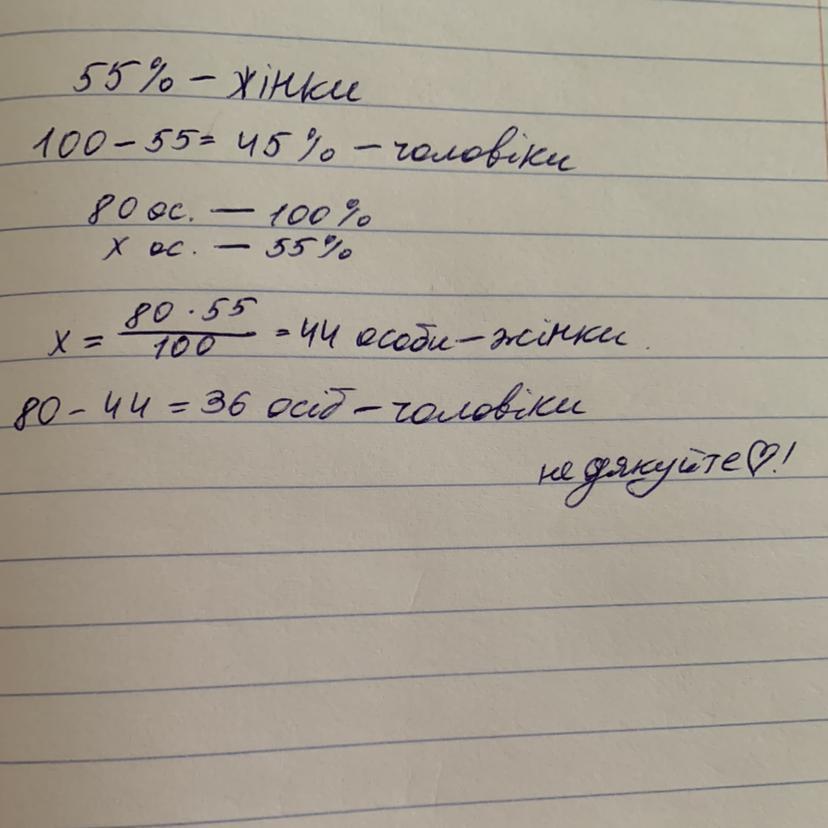 55% – жінки
100 – 55 = 45% – чоловіки
80 ос. — 100%
x ос. — 55%
x = 80 · 55 / 100 = 44 особи – жінки.
80 – 44 = 36 осіб – чоловіки
не дякуйте♡!